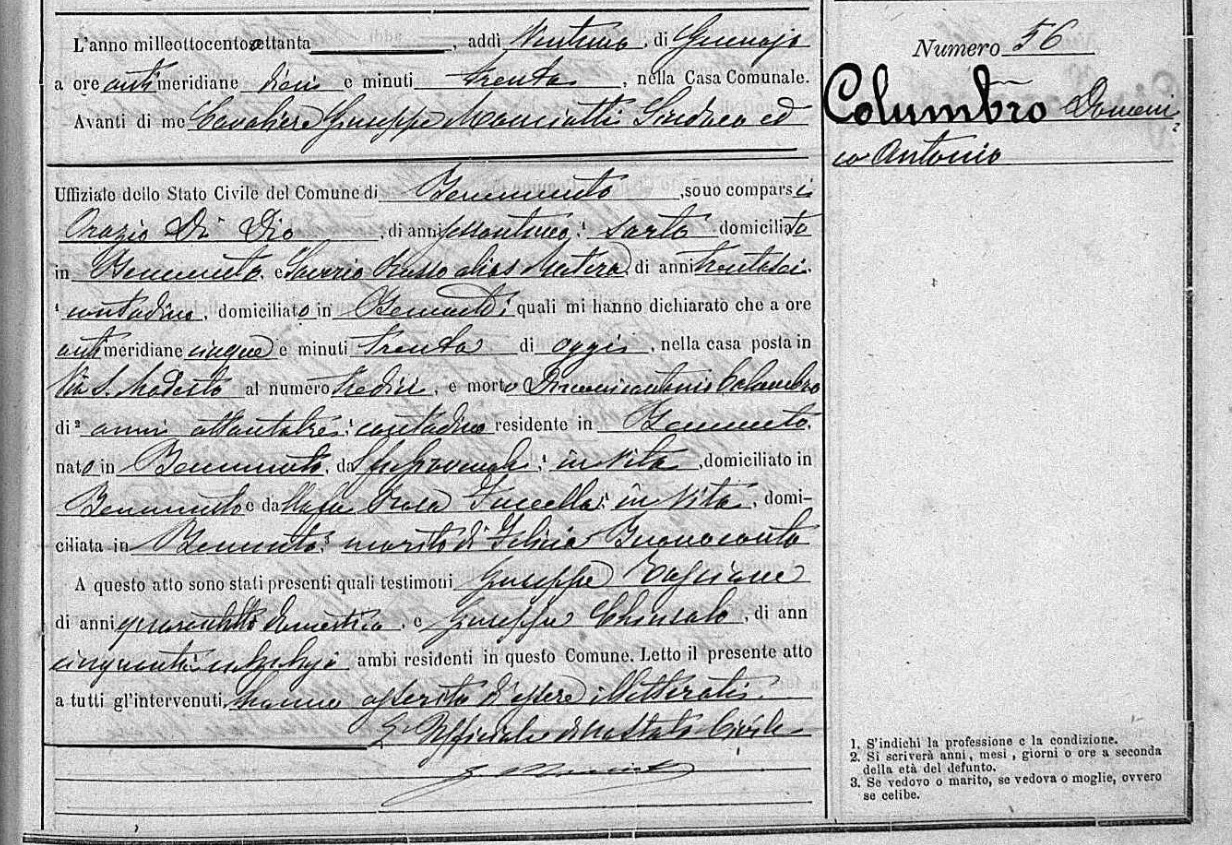 L'anno milleottocentosettanta, addì Ventuno, di Gennajo
a ore antimeridiane dieci e minuti trenta, nella Casa Comunale.
Avanti di me Cavaliere Giuseppe Manciotti Sindaco ed
Uffiziale dello Stato Civile del Comune di Benevento, sono comparsi
Orazio Di Dio, di anni sessantuno, ¹ sarto domiciliato
in Benevento, e Saverio Russo alias Matera, di anni trentasei
¹ contadino, domiciliato in Benevento, i quali mi hanno dichiarato che a ore
antimeridiane cinque e minuti trenta di oggi, nella casa posta in
Via S. Modesto al numero tredici, è morto Domenicantonio Columbro
di ² anni ottantatre, ¹ contadino residente in Benevento,
nato in Benevento, da ¹ in vita, domiciliato in
Benevento e dalla fu Rosa Fucella, ¹ in vita, domi-
ciliata in Benevento, ³ marito di Felicia Buonoconto
A questo atto sono stati presenti quali testimoni Giuseppe
di anni quarantotto domestico, e Giuseppe, di ann
cinquanta ambi residenti in questo Comune. Letto il presente atto
a tutti gl'intervenuti, hanno asserito d'essere illetterati.
L'Uffiziale dello Stato Civile
Numero 56
Columbro Domeni-
co Antonio
1. S'indichi la professione e la condizione.
2. Si scriverà anni, mesi, giorni o ore a seconda
della età del defunto.
3. Se vedovo o marito, se vedova o moglie, ovvero
se celibe.